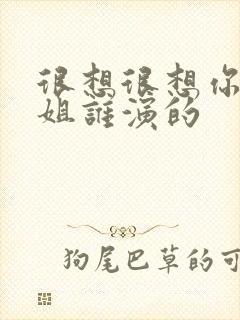 很想很想你
姐誰演的
狗尾巴草的可